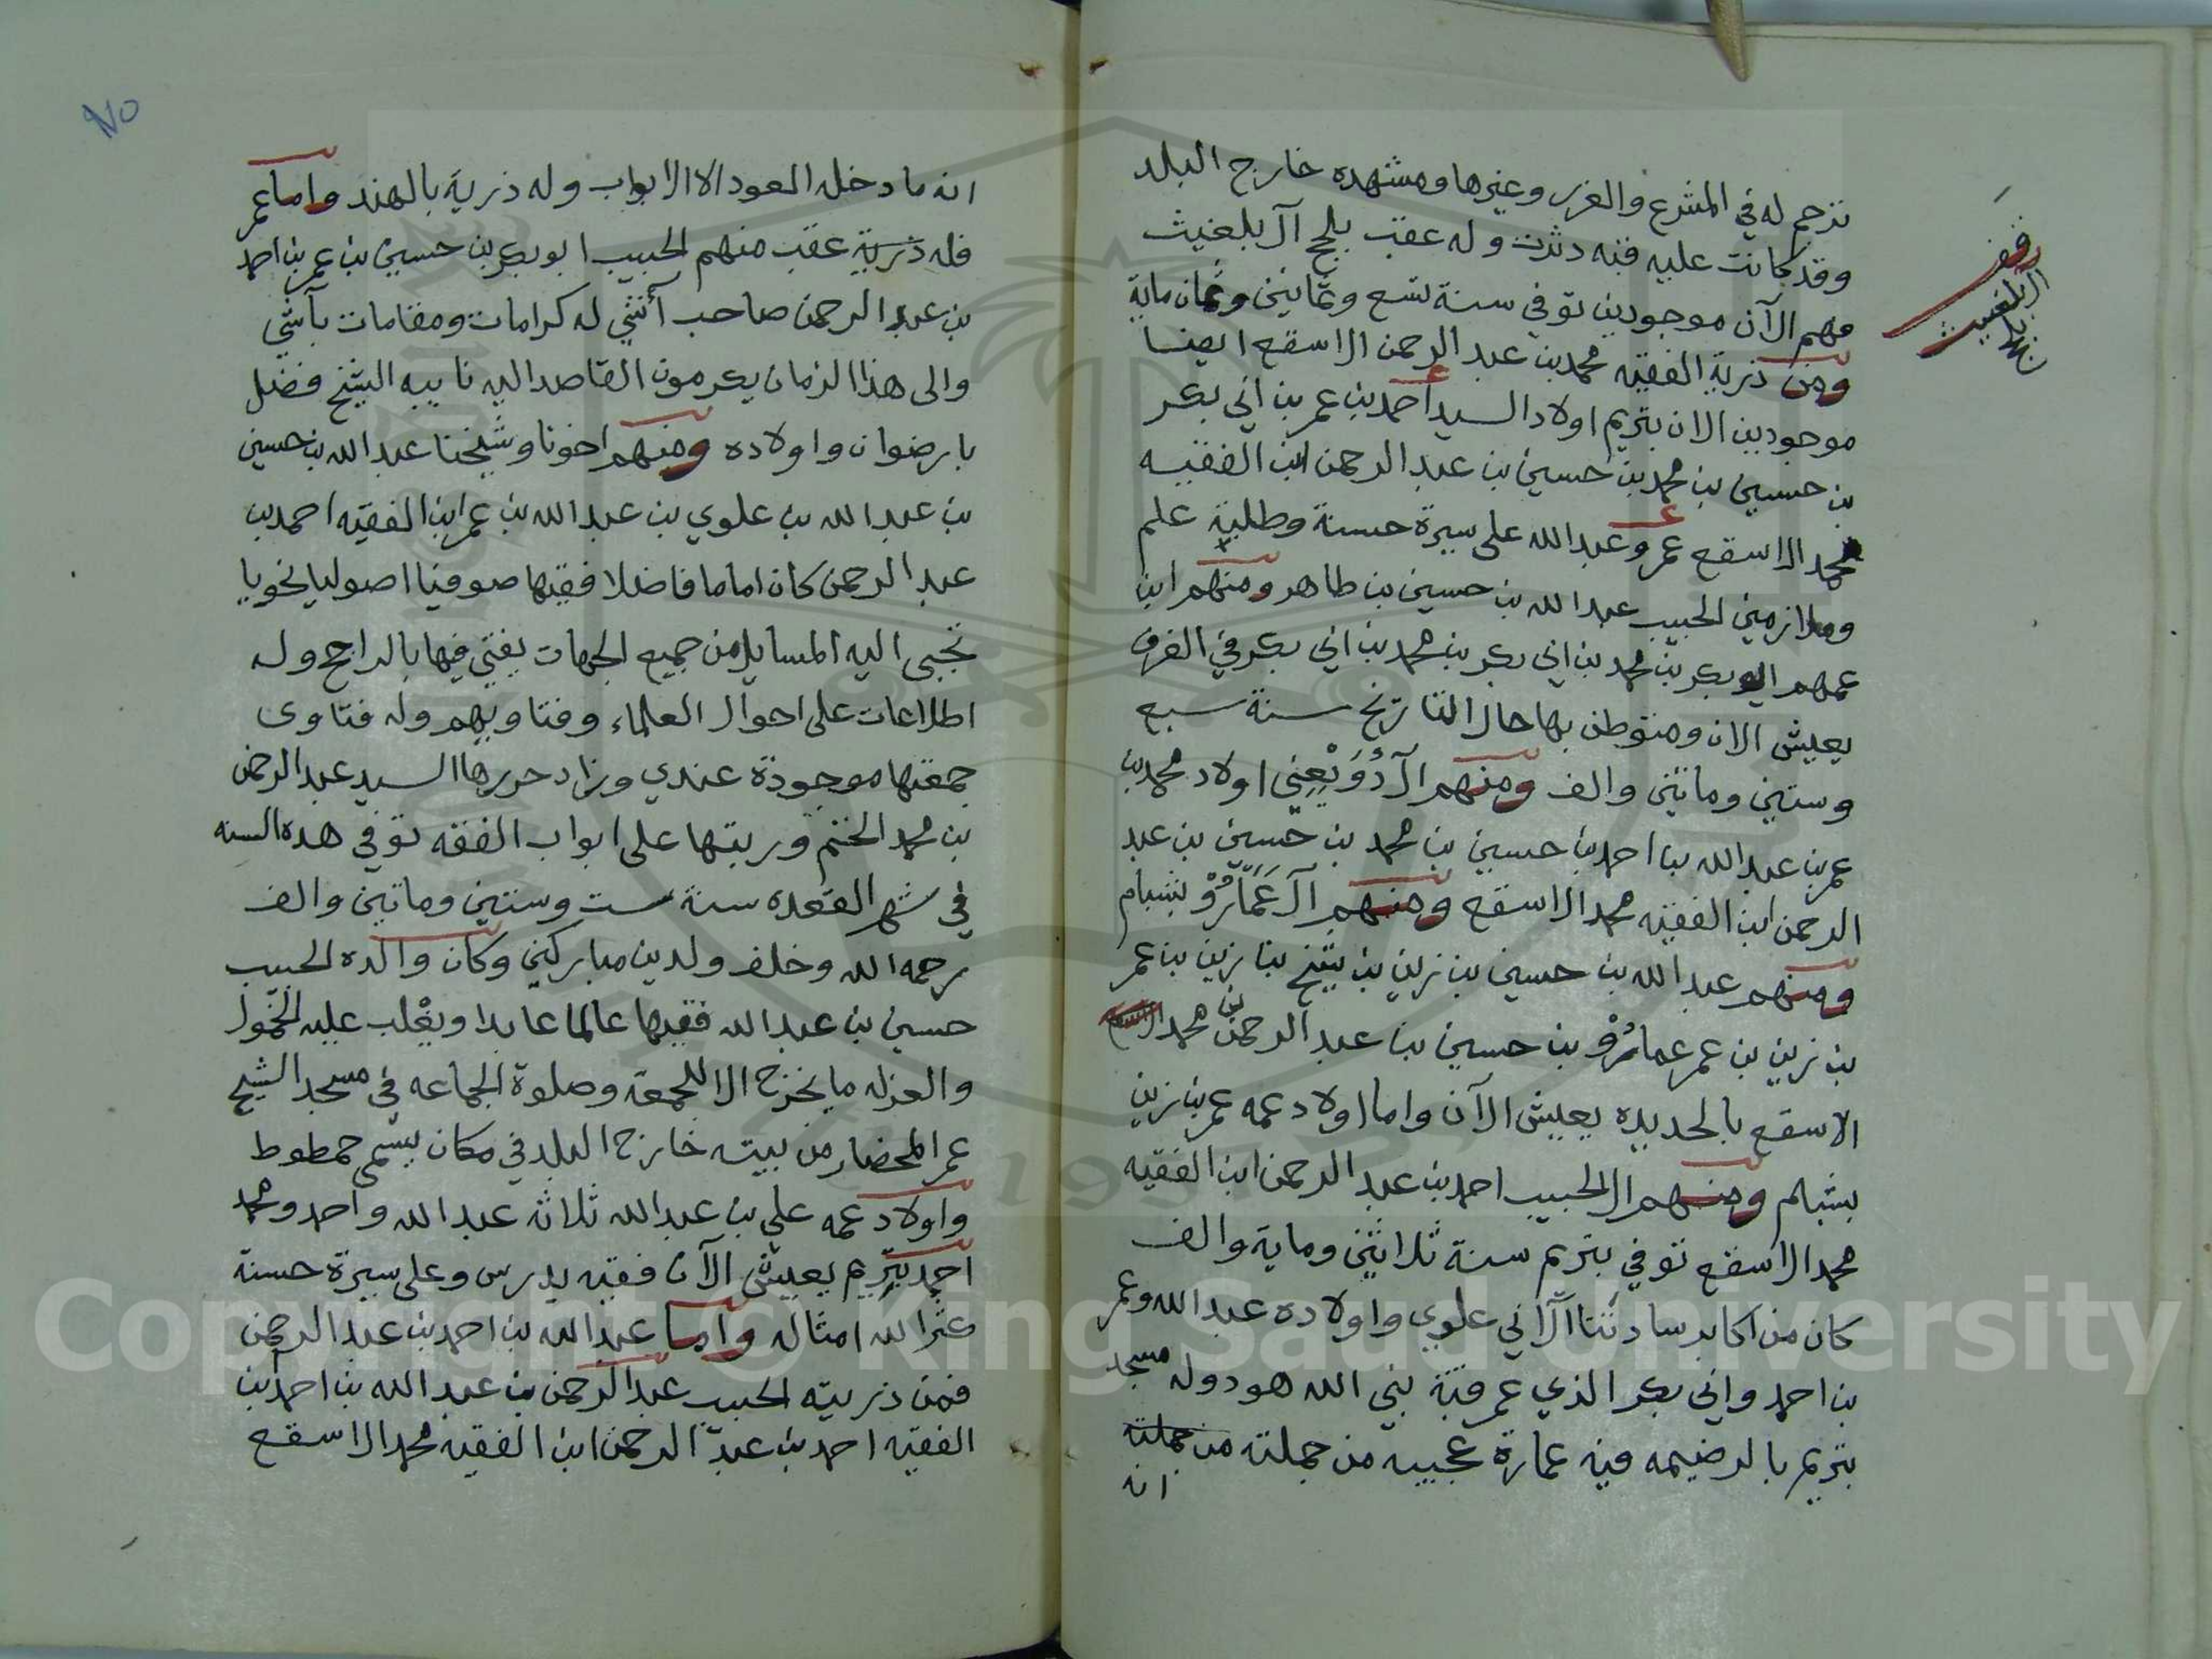 ترجم له في المشرع والغرر وغيرها ومشهده خارج البلد
وقد كانت عليه قبه دثرت وله عقب بلحج آل بلغيث
منهم الآن موجودين توفي سنة تسع وثمانين وثمان ماية
ومن ذرية الفقيه محمد بن عبد الرحمن الاسقع ايضا
موجودين الان بتريم اولاد السيد أحمد بن عمر بن ابي بكر
بن حسين بن محمد بن حسين بن عبد الرحمن ابن الفقيه
محمد الاسقع عمر وعبد الله على سيرة حسنة وطلبة علم
وملازمين الحبيب عبد الله بن حسين بن طاهر ومنهم ابن
عمهم ابوبكر بن محمد بن ابي بكر بن محمد بن ابي بكر في الغرف
يعيش الان ومتوطن بها حال التاريخ سنة سبع
وستين وماتين والف ومنهم آل دُوَيْعِني اولاد محمد بن
عمر بن عبد الله بن احمد بن حسين بن محمد بن حسين بن عبد
الرحمن ابن الفقيه محمد الاسقع ومنهم آل عَمَّارُوْ بشبام
ومنهم عبد الله بن حسين بن زين بن شيخ بن زين بن عمر
بن زين بن عمر عمارُوْ بن حسين بن عبد الرحمن بن محمد
الاسقع بالحديده يعيش الآن واما اولاد عمه عمر بن زين
بشبام ومنهم الحبيب احمد بن عبد الرحمن ابن الفقيه
محمد الاسقع توفي بتريم سنة ثلاثين وماية والف
كان من اكابر سادتنا آل ابي علوي واولاده عبد الله وعمر
بن احمد وابي بكر الذي عمر قبة نبي الله هود وله مسجد
بتريم بالرضيمه فيه عمارة عجيبه من جملته من جملته
انه
آل بلغيث
انه ما دخله العود الا الابواب وله ذرية بالهند واما عمر
فله ذرية عقب منهم الحبيب ابوبكر بن حسين بن عمر بن احمد
بن عبد الرحمن صاحب آشي له كرامات ومقامات بآشي
والى هذا الزمان يكرمون القاصد اليه نايبه الشيخ فضل
بارضوان واولاده ومنهم اخونا وشيخنا عبد الله بن حسين
بن عبد الله بن علوي بن عبد الله بن عمر ابن الفقيه احمد بن
عبد الرحمن كان اماما فاضلا فقيها صوفيا اصوليا نحويا
تجبى اليه المسايل من جميع الجهات يفتي فيها بالراجح وله
اطلاعات على احوال العلماء وفتاويهم وله فتاوى
جمعتها موجودة عندي وزاد حررها السيد عبد الرحمن
بن محمد وربتها على ابواب الفقه توفي هده السنه
في شهر القعده سنة ست وستين وماتين والف
رحمه الله وخلف ولدين مباركين وكان والده الحبيب
حسين بن عبد الله فقيها عالما عابدا ويغْلب عليه الخمول
والعزله ما يخرج الا للجمعة وصلوة الجماعه في مسجد الشيخ
عمر المحضار من بيته خارج البلد في مكان يسمى حمطوط
واولاد عمه علي بن عبد الله ثلاثه عبد الله واحمد ومحمد
احمد بتريم يعيش الآن فقيه يدرس وعلى سيرة حسنة
كثر الله امثاله واما عبد الله بن احمد بن عبد الرحمن
فمن ذريته الحبيب عبد الرحمن بن عبد الله بن احمد بن
الفقيه احمد بن عبد الرحمن ابن الفقيه محمد الاسقع
٧٥
Copyright © King Saud University